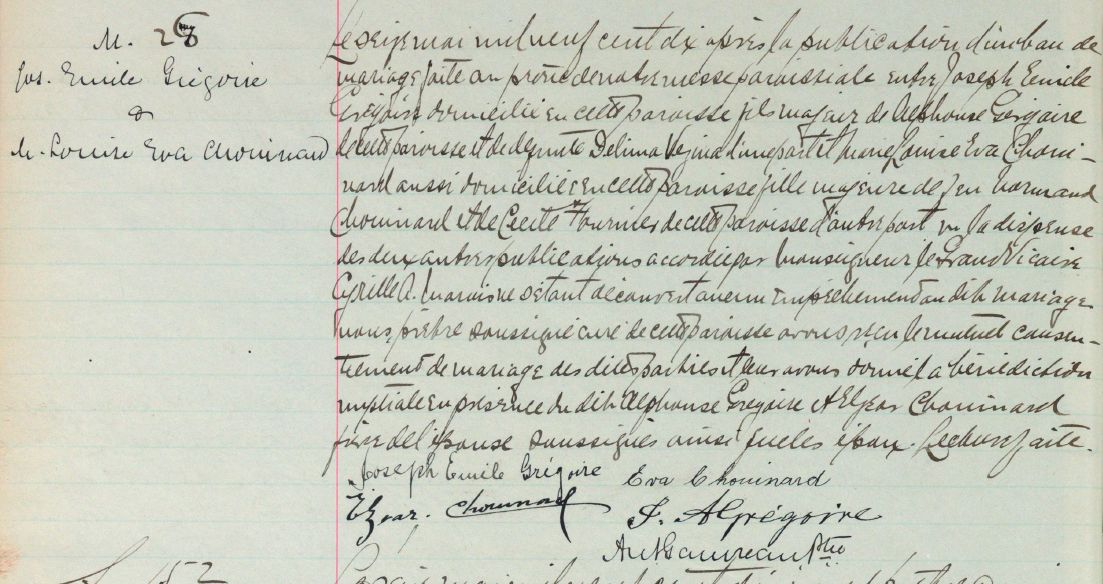 M. 28
Jos. Emile Grégoire
&
M. Louise Eva Chouinard
Le seize mai mil neuf cent dix après la publication d'un ban de
mariage faite au prône de notre messe paroissiale entre Joseph Emile
Grégoire domicilié en cette paroisse fils majeur de Alphonse Grégoire
de cette paroisse et de défunte Delima Vezina d'une part et Marie Louise Eva Choui-
nard aussi domiciliée en cette paroisse fille majeure de feu Normand
Chouinard et de Cécile Fournier de cette paroisse d'autre part vu la dispense
des deux autres publications accordée par Monseigneur le Grand Vicaire
Cyrille A. Marois ne s'étant découvert aucun empêchement au dit mariage
nous, prêtre soussigné curé de cette paroisse avons reçu le mutuel consen-
tement de mariage des dites parties et leur avons donné la bénédiction
nuptiale en présence du dit Alphonse Grégoire et Elzear Chouinard
frère de l'épouse soussignés ainsi que les époux. Lecture faite.
Joseph Emile Grégoire Eva Chouinard
Elzear. Chouinard J. A Grégoire
Ant Gauvreau Ptre